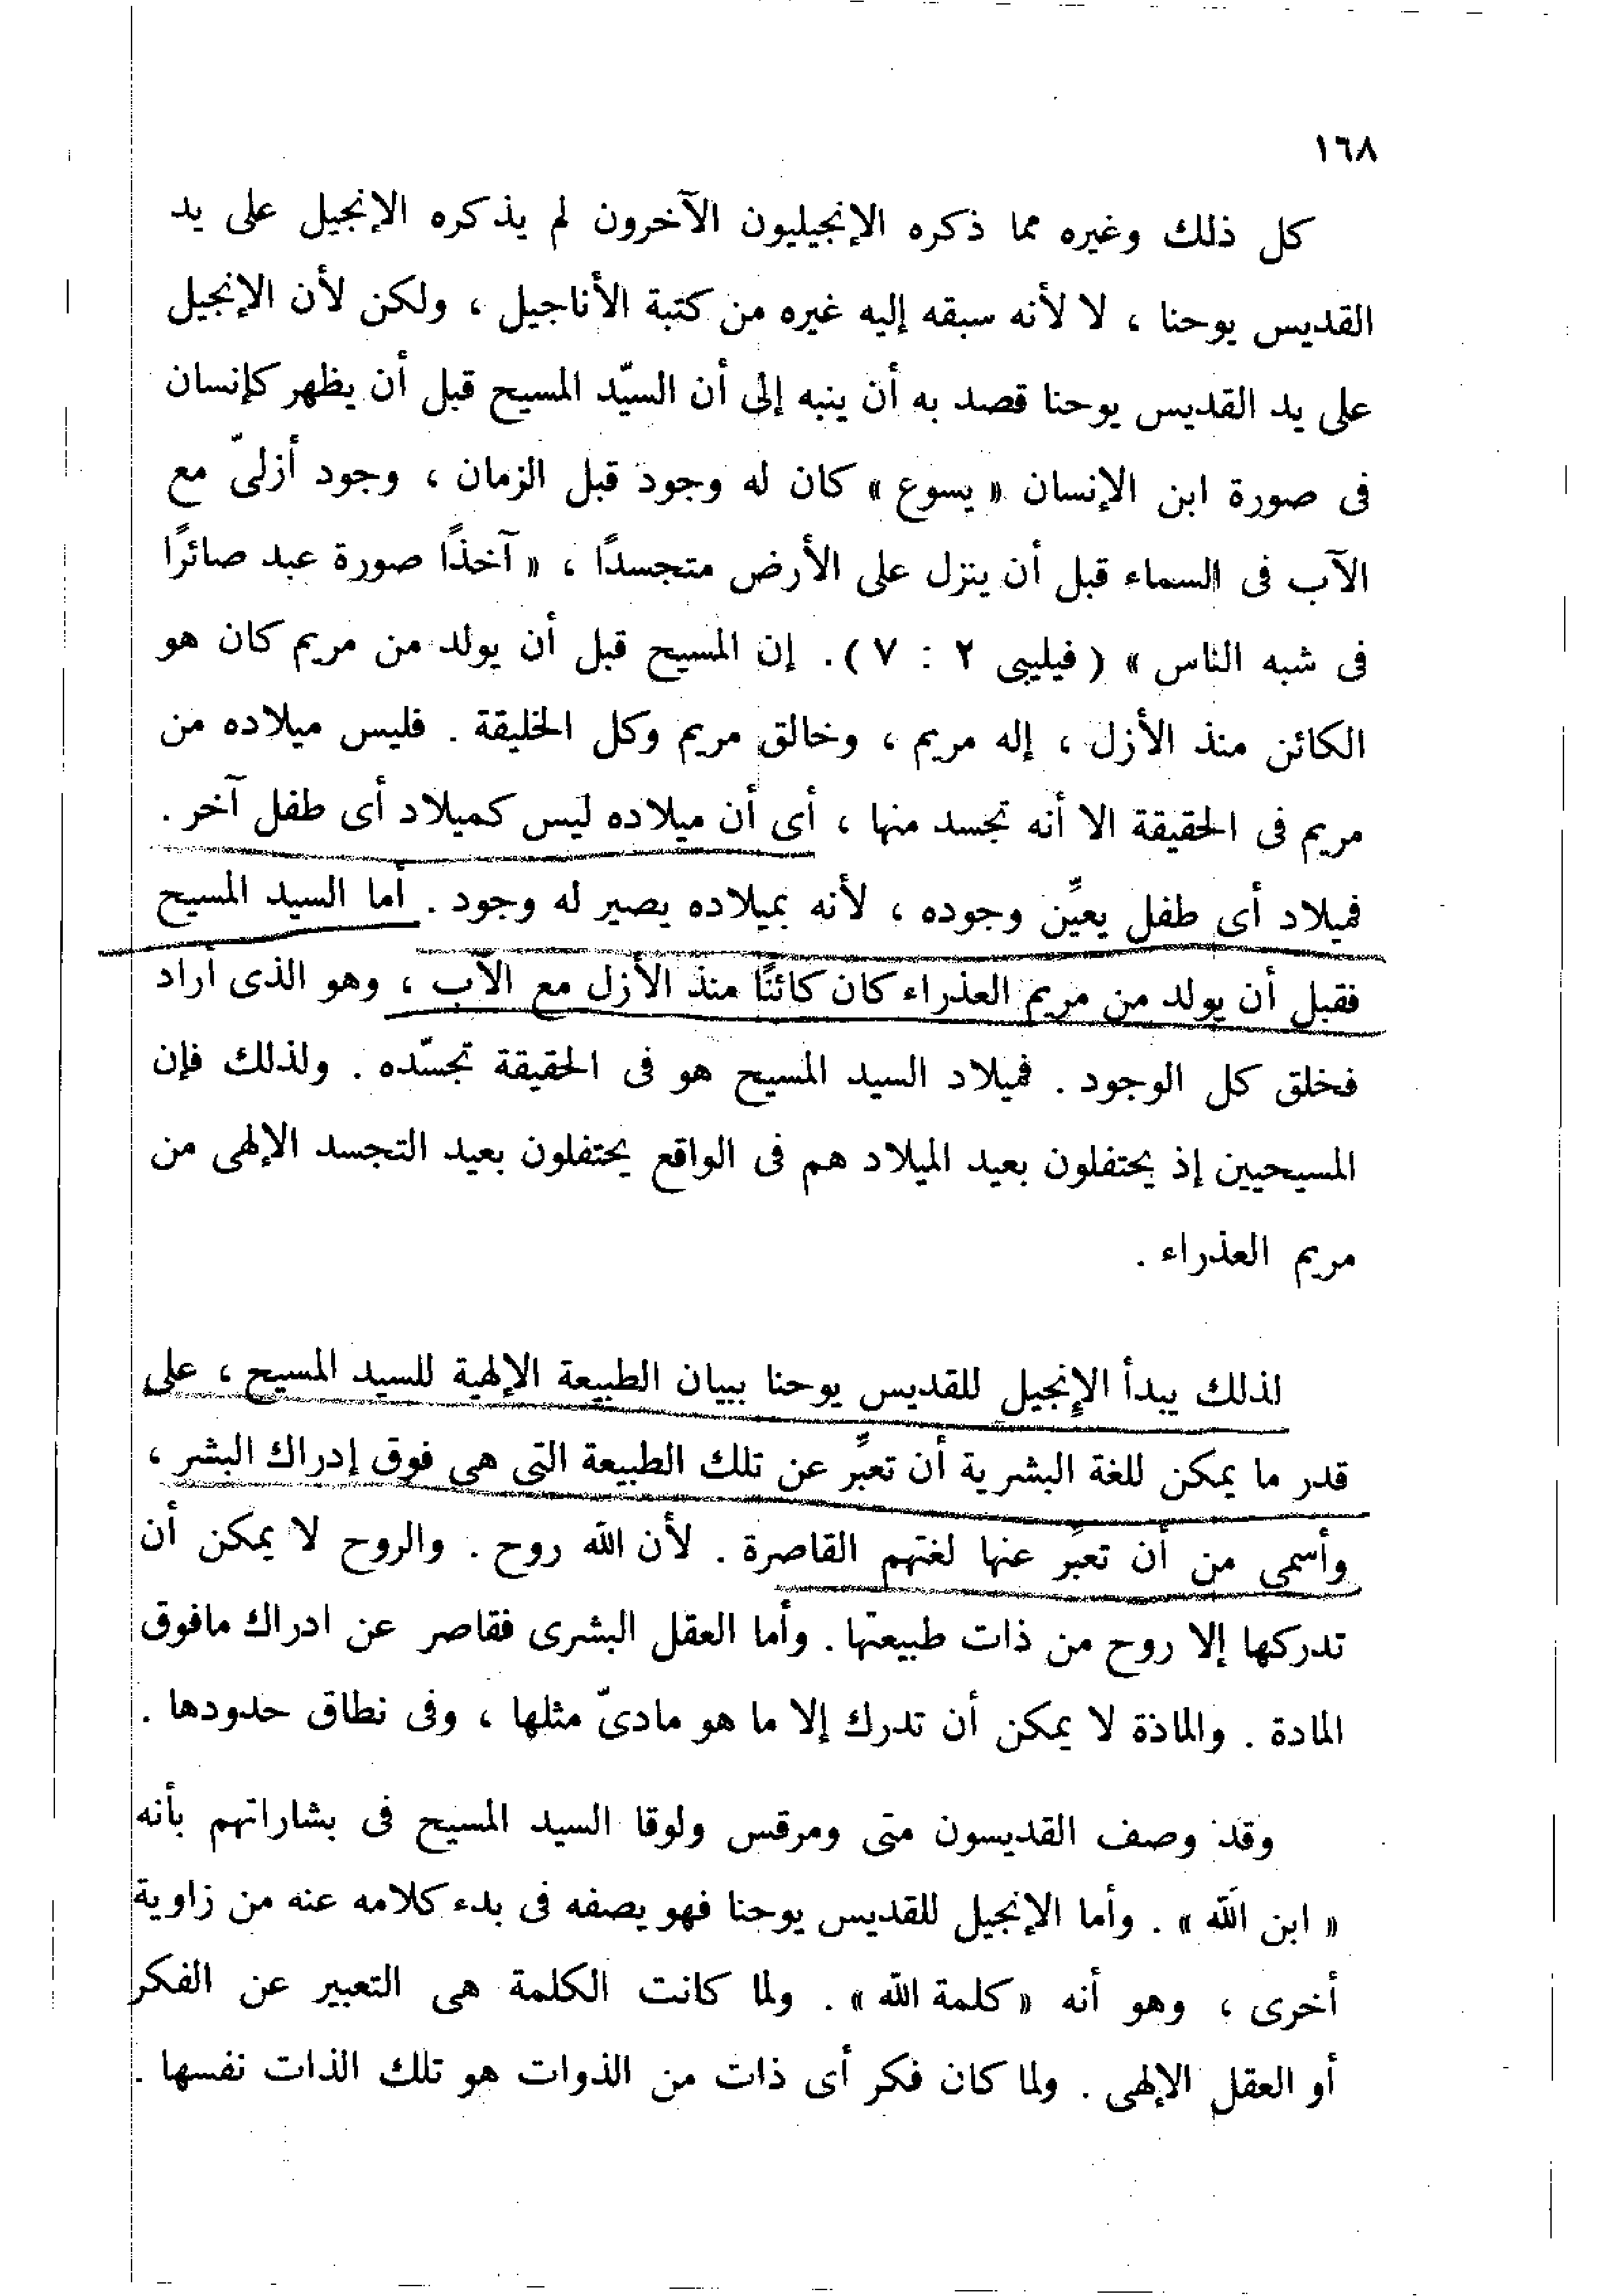 ١٦٨
كل ذلك وغيره مما ذكره الإنجيليون الآخرون لم يذكره الإنجيل على يد
القديس يوحنا ، لا لأنه سبقه إليه غيره من كتبة الأناجيل ، ولكن لأن الإنجيل
على يد القديس يوحنا قصد به أن ينبه إلى أن السيّد المسيح قبل أن يظهر كإنسان
فى صورة ابن الإنسان « يسوع » كان له وجود قبل الزمان ، وجود أزلىّ مع
الآب فى السماء قبل أن ينزل على الأرض متجسدًا ، « آخذًا صورة عبد صائرًا
فى شبه الناس » ( فيليبى ٢ : ٧ ) . إن المسيح قبل أن يولد من مريم كان هو
الكائن منذ الأزل ، إله مريم ، وخالق مريم وكل الخليقة . فليس ميلاده من
مريم فى الحقيقة الا أنه تجسد منها ، أى أن ميلاده ليس كميلاد أى طفل آخر .
فميلاد أى طفل يعيِّن وجوده ، لأنه بميلاده يصير له وجود . أما السيد المسيح
فقبل أن يولد من مريم العذراء كان كائنًا منذ الأزل مع الآب ، وهو الذى أراد
فخلق كل الوجود . فميلاد السيد المسيح هو فى الحقيقة تجسّده . ولذلك فإن
المسيحيين إذ يحتفلون بعيد الميلاد هم فى الواقع يحتفلون بعيد التجسد الإلهى من
مريم العذراء .
لذلك يبدأ الإنجيل للقديس يوحنا ببيان الطبيعة الإلهية للسيد المسيح ، على
قدر ما يمكن للغة البشرية أن تعبِّر عن تلك الطبيعة التى هى فوق إدراك البشر ،
وأسمى من أن تعبِّر عنها لغتهم القاصرة . لأن الله روح . والروح لا يمكن أن
تدركها إلا روح من ذات طبيعتها . وأما العقل البشرى فقاصر عن ادراك مافوق
المادة . والمادة لا يمكن أن تدرك إلا ما هو مادىّ مثلها ، وفى نطاق حدودها .
وقد وصف القديسون متى ومرقس ولوقا السيد المسيح فى بشاراتهم بأنه
« ابن الله » . وأما الإنجيل للقديس يوحنا فهو يصفه فى بدء كلامه عنه من زاوية
أخرى ، وهو أنه « كلمة الله » . ولما كانت الكلمة هى التعبير عن الفكر
أو العقل الإلهى . ولما كان فكر أى ذات من الذوات هو تلك الذات نفسها .